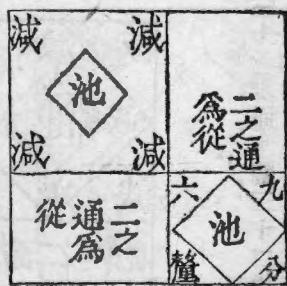 減 減
池
減 減
二之通
為從
二之
通為
從
九分
六釐
池